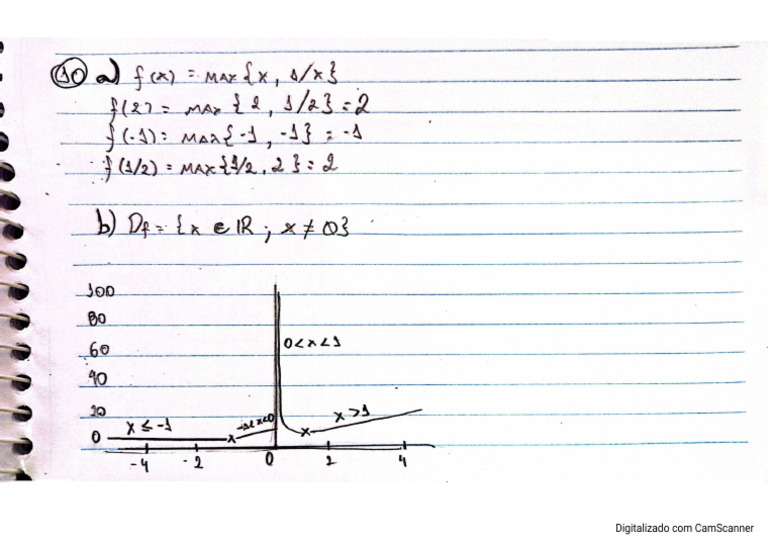 10 a) f(x) = MAX{x, 1/x}
f(2) = MAX{2, 1/2} = 2
f(-1) = MAX{-1, -1} = -1
f(1/2) = MAX{1/2, 2} = 2
b) Df = {x ∈ IR ; x ≠ 0}
100
80
60
40
20
0
0<x<1
x ≤ -1
-1<x<0
x > 1
-4 -2 0 2 4
Digitalizado com CamScanner